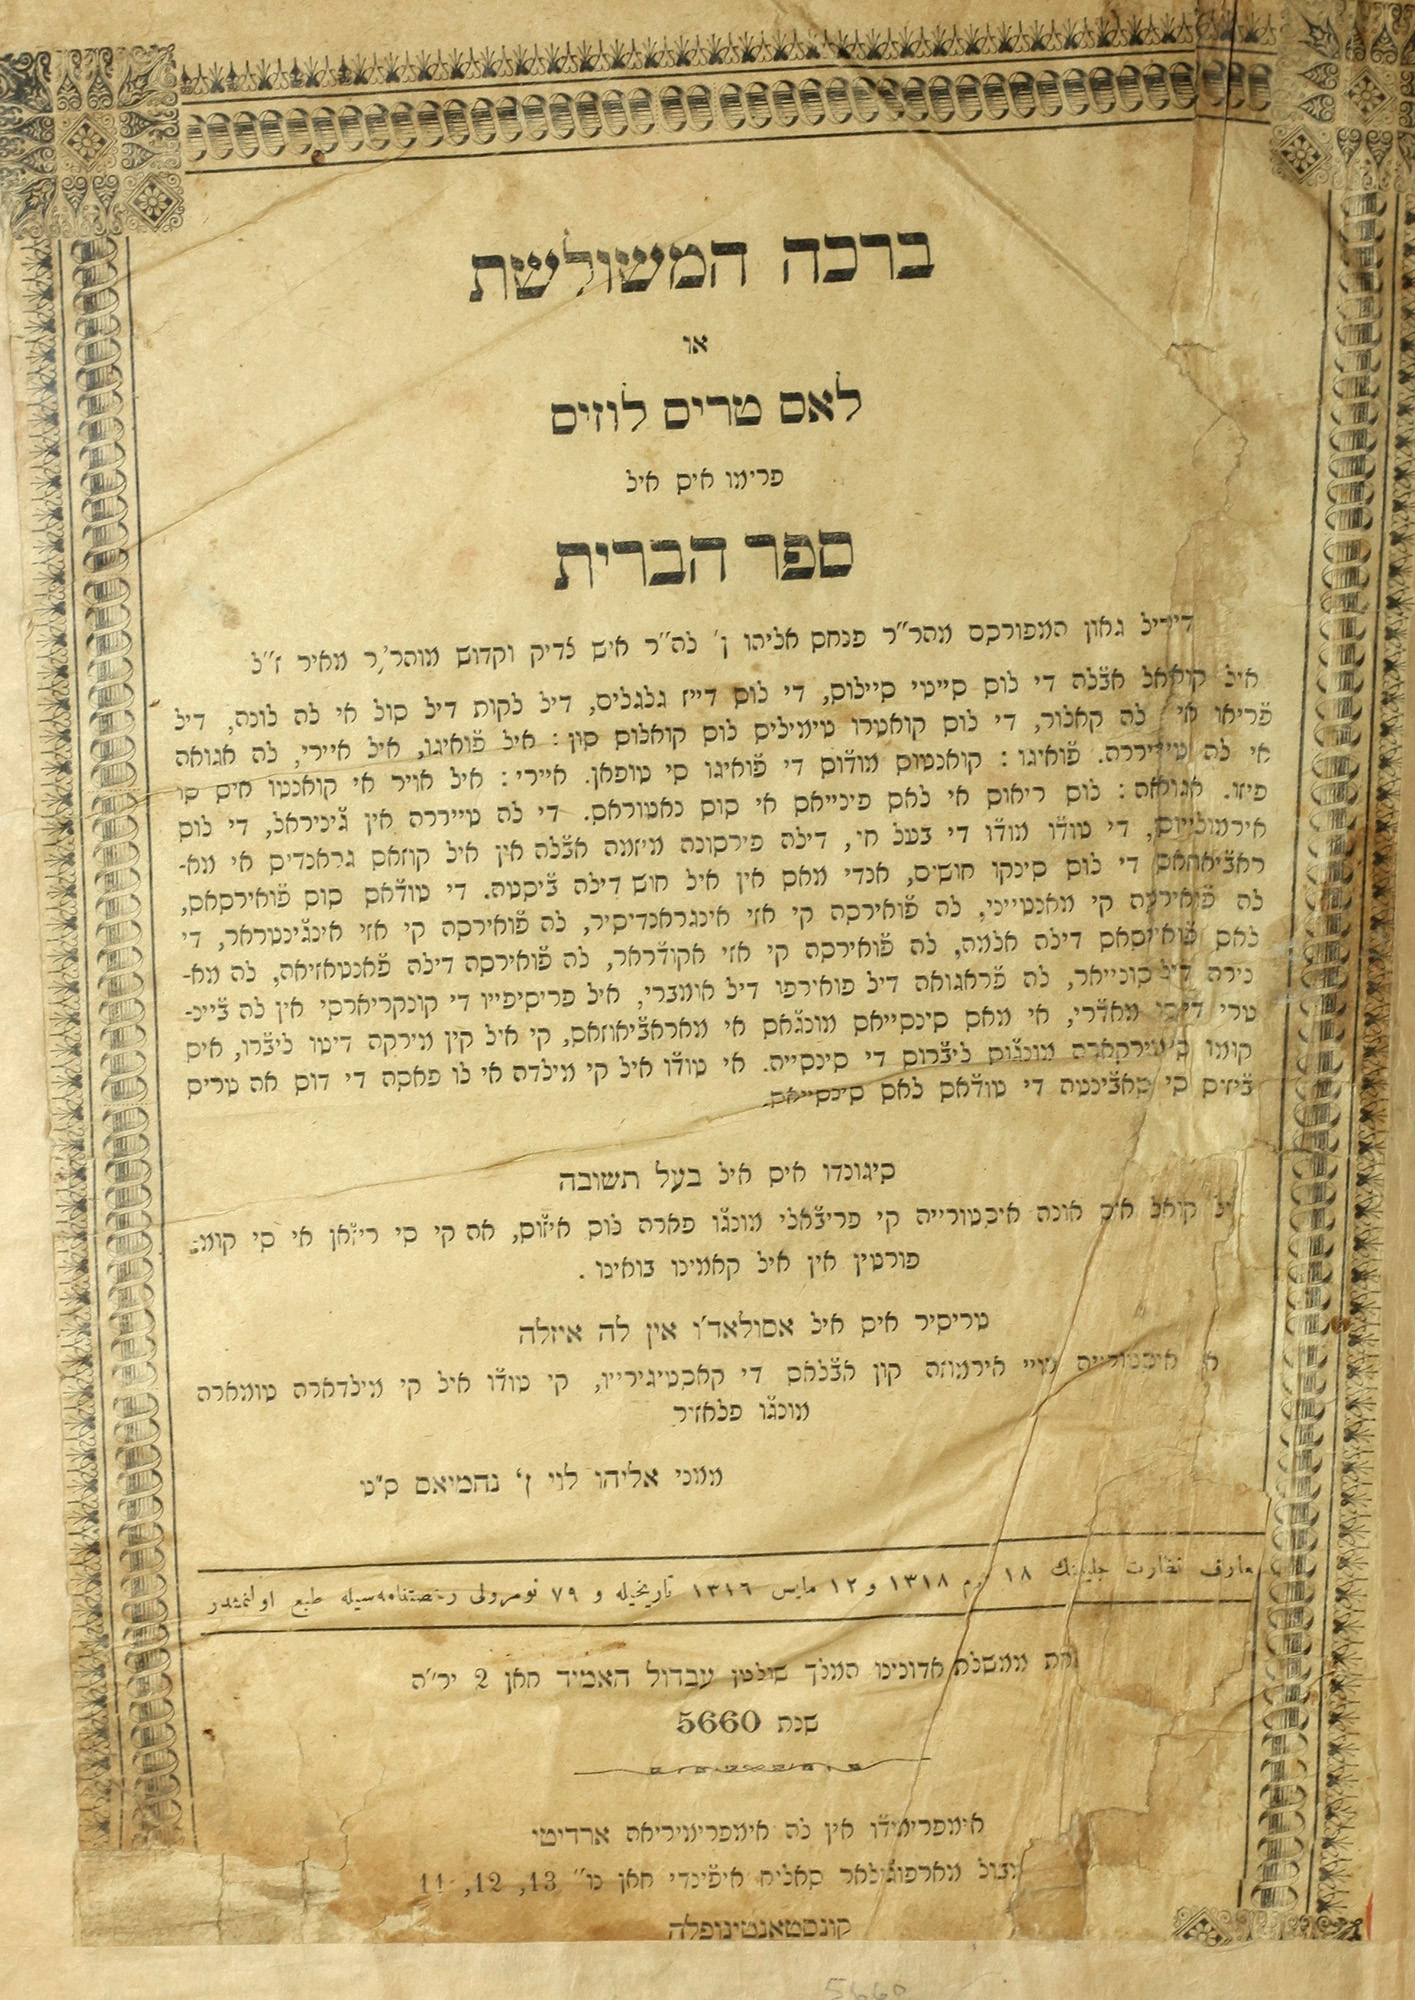 ברכה המשולשת
או
לאס טריס לוזיס
פרימו איס איל
ספר הברית
דיריל גאון המפורסם מהר״ר פנחס אליהו ן׳ לה״ר איש צדיק וקדוש מוהר״ר מאיר ז״ל
איל קואאל אב̈לה די לוס סייטי סיילוס, די לוס דייז גלגלים, דיל לקות דיל סול אי לה לונה, דיל
פ̈ריאו אי לה קאלור, די לוס קואטרו טימילים לוס קואלוס סון: איל פ̈ואיגו, איל איירי, לה אגואה
אי לה טייררה. פ̈ואיגו: קואנטוס מודוס די פ̈ואיגו סי טופאן. איירי: איל אויר אי קואנטו איס סו
פיזו. אגואה: לוס ריאוס אי לאס פינייאס אי סוס נאטוראס. די לה טייררה אין ג̈יניראל, די לוס
אירמולייוס, די טודו מודו די בעל חי, דילה פירסונה מיזמה אב̈לה אין איל קוזאס גראנדיס אי מא-
ראב̈יאוזאס די לוס סינקו חושים, אנדי מאס אין איל חוש דילה ב̈יסטה. די טודאס סוס פ̈ואירסאס,
לה פ̈ואירסה קי מאנטייני, לה פ̈ואירסה קי אזי אינגראנדיסיר, לה פ̈ואירסה קי אזי אינג̈ינטראר, די
לאס פ̈ואירסאס דילה אלמה, לה פ̈ואירסה קי אזי אקודראר, לה פ̈ואירסה דילה פ̈אנטאזיאה, לה מא-
נירה דיל סונייאר, לה פ̈ראגואה דיל פואירפו דיל אומברי, איל פריסיפייו די קונקריארסי אין לה ב̈יינ-
טרי דיסו מאדרי, אי מאס סינסייאס מונג̈אס אי מאראב̈יאוזאס, קי איל קין מירקה דיטו ליב̈רו, איס
קומו סי מירקארה מונג̈וס ליב̈רוס די סינסייה. אי טודו איל קי מילדה אי לו פאסה די דוס אה טריס
ב̈יזיס סי סאב̈יינטה די טודאס לאס סינסייאס.
סיגונדו איס איל בעל תשובה
קואל איס אונה איסטורייה קי פריב̈אלי מונג̈ו פארה לוס איזוס, אה קי סי ריז̈אן אי סי קומ-
פורטין אין איל קאמינו בואינו.
טריסיר איס איל אסולאד׳ו אין לה איזלה
איסטורייה מויי אירמוזה קון אב̈לאס די קאסטיגירייו, קי טודו איל קי מילדארה טומארה
מונג̈ו פלאזיר
ממני אליהו לוי ן׳ נחמיאס ס״ט
معارف نظارت جليله‌نك ١٨ محرم ١٣١٨ و ١٢ مايس ١٣١٦ تاريخيله و ٧٩ نومرولى رخصتنامه‌سيله طبع اولنمشدر
ממשלת אדונינו המלך שולטן עבדול האמיד חאן 2 יר״ה
שנת 5660
אימפרימידו אין לה אימפרימיריאה ארדיטי
מארפוג̈ילאר סאליח איפ̈ינדי חאן נו״ 13, 12, 11
קונסטאנטינופלה
5660